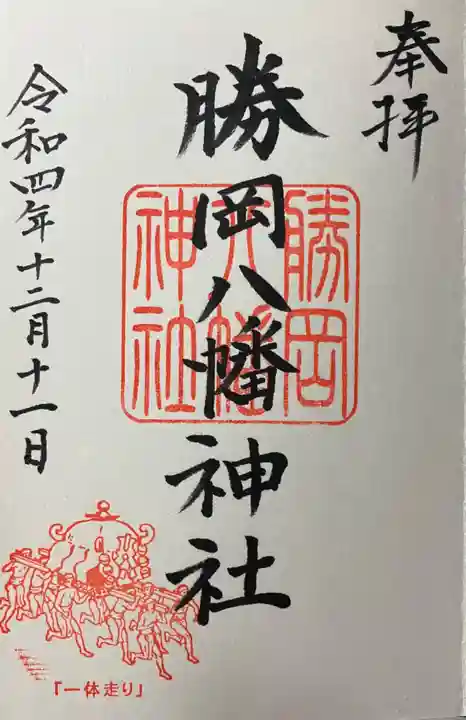 奉拝
勝岡八幡神社
勝岡
八幡
神社
令和四年十二月十一日
『一体走り』